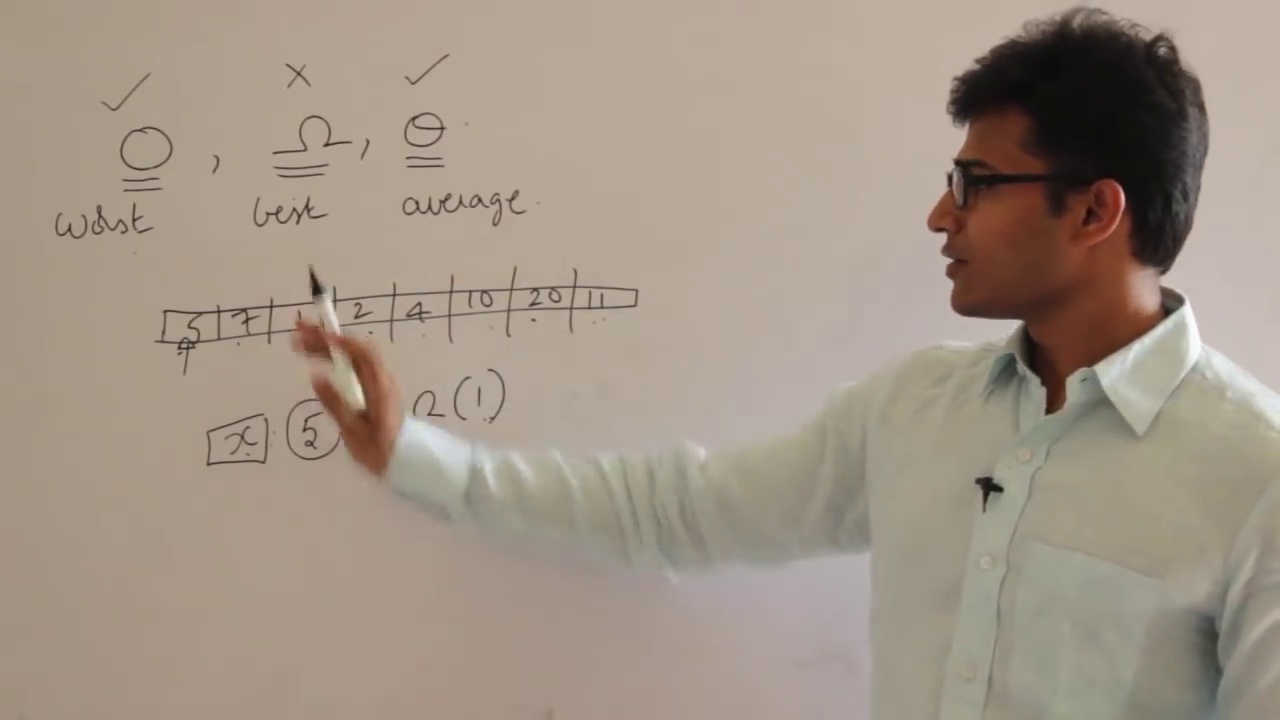 O , Ω , Θ
worst best average.
5 7 1 2 4 10 20 11
x 5 Ω(1)